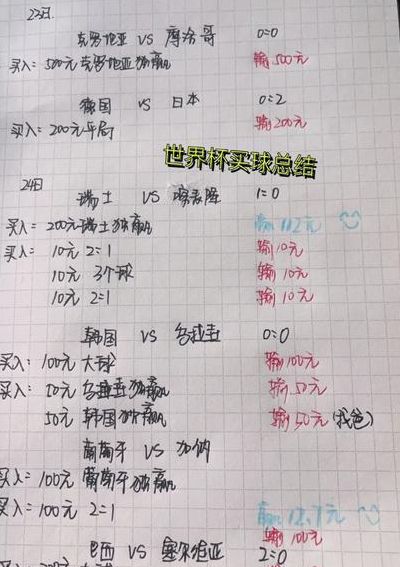 23日.
克罗地亚 VS 摩洛哥 0:0
买入: 500元克罗地亚独赢 输500元
德国 VS 日本 0:2
买入: 200元平局 输200元
世界杯买球总结
24日
瑞士 VS 1:0
买入: 200元瑞士独赢 赢112元
买入: 10元 2:1 输10元
10元 3个球 输10元
10元 2:1 输10元
韩国 VS 乌拉圭 0:0
买入: 100元 大球 输100元
买入: 50元 乌拉圭独赢 输50元
50元 韩国独赢 输50元
葡萄牙 VS 加纳
买入: 100元 葡萄牙独赢
买入: 100元 2:1 输100元
巴西 VS 塞尔维亚 2:0